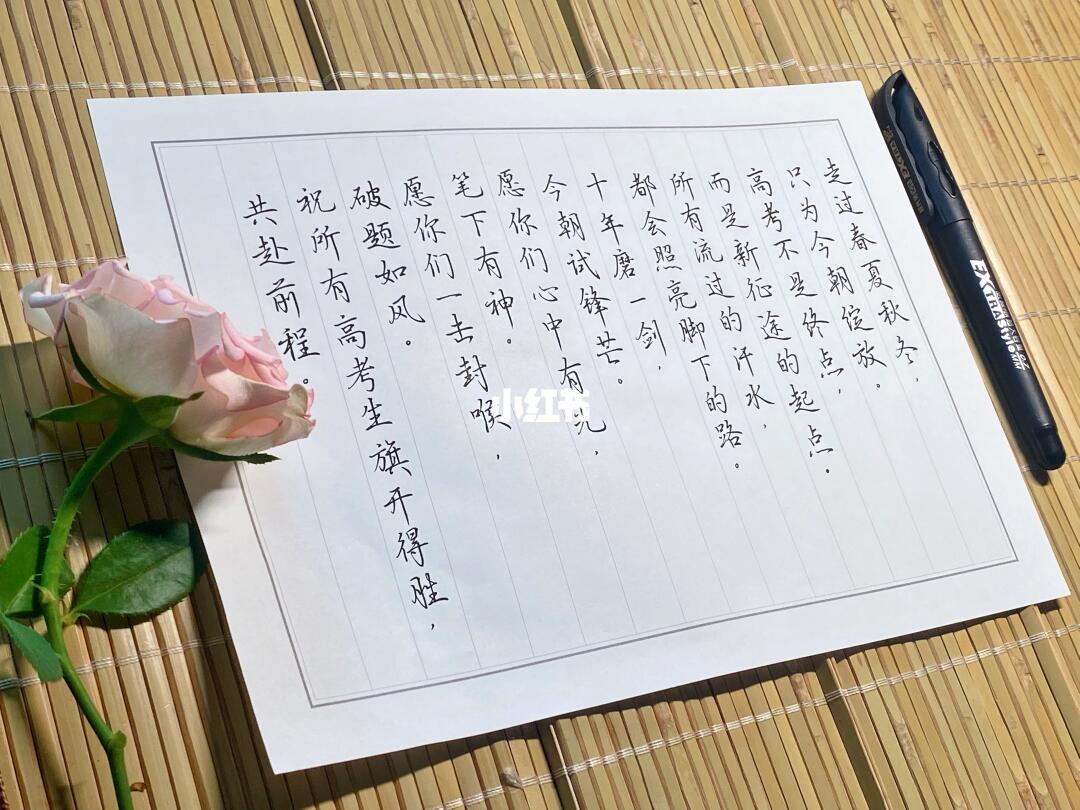 走过春夏秋冬，
只为今朝绽放。
高考不是终点，
而是新征途的起点。
所有流过的汗水，
都会照亮脚下的路。
十年磨一剑，
今朝试锋芒。
愿你们心中有光，
笔下有神。
愿你们一击封喉，
破题如风。
祝所有高考生旗开得胜，
共赴前程。
小红书